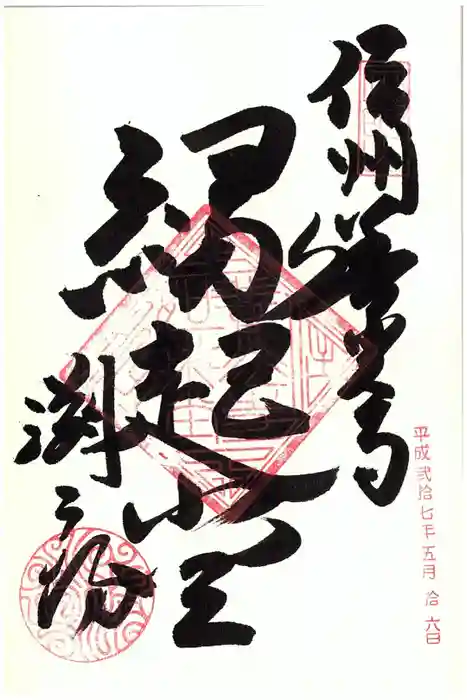 信州善光寺
縁起堂
淵之坊
平成弐拾七年五月拾六日